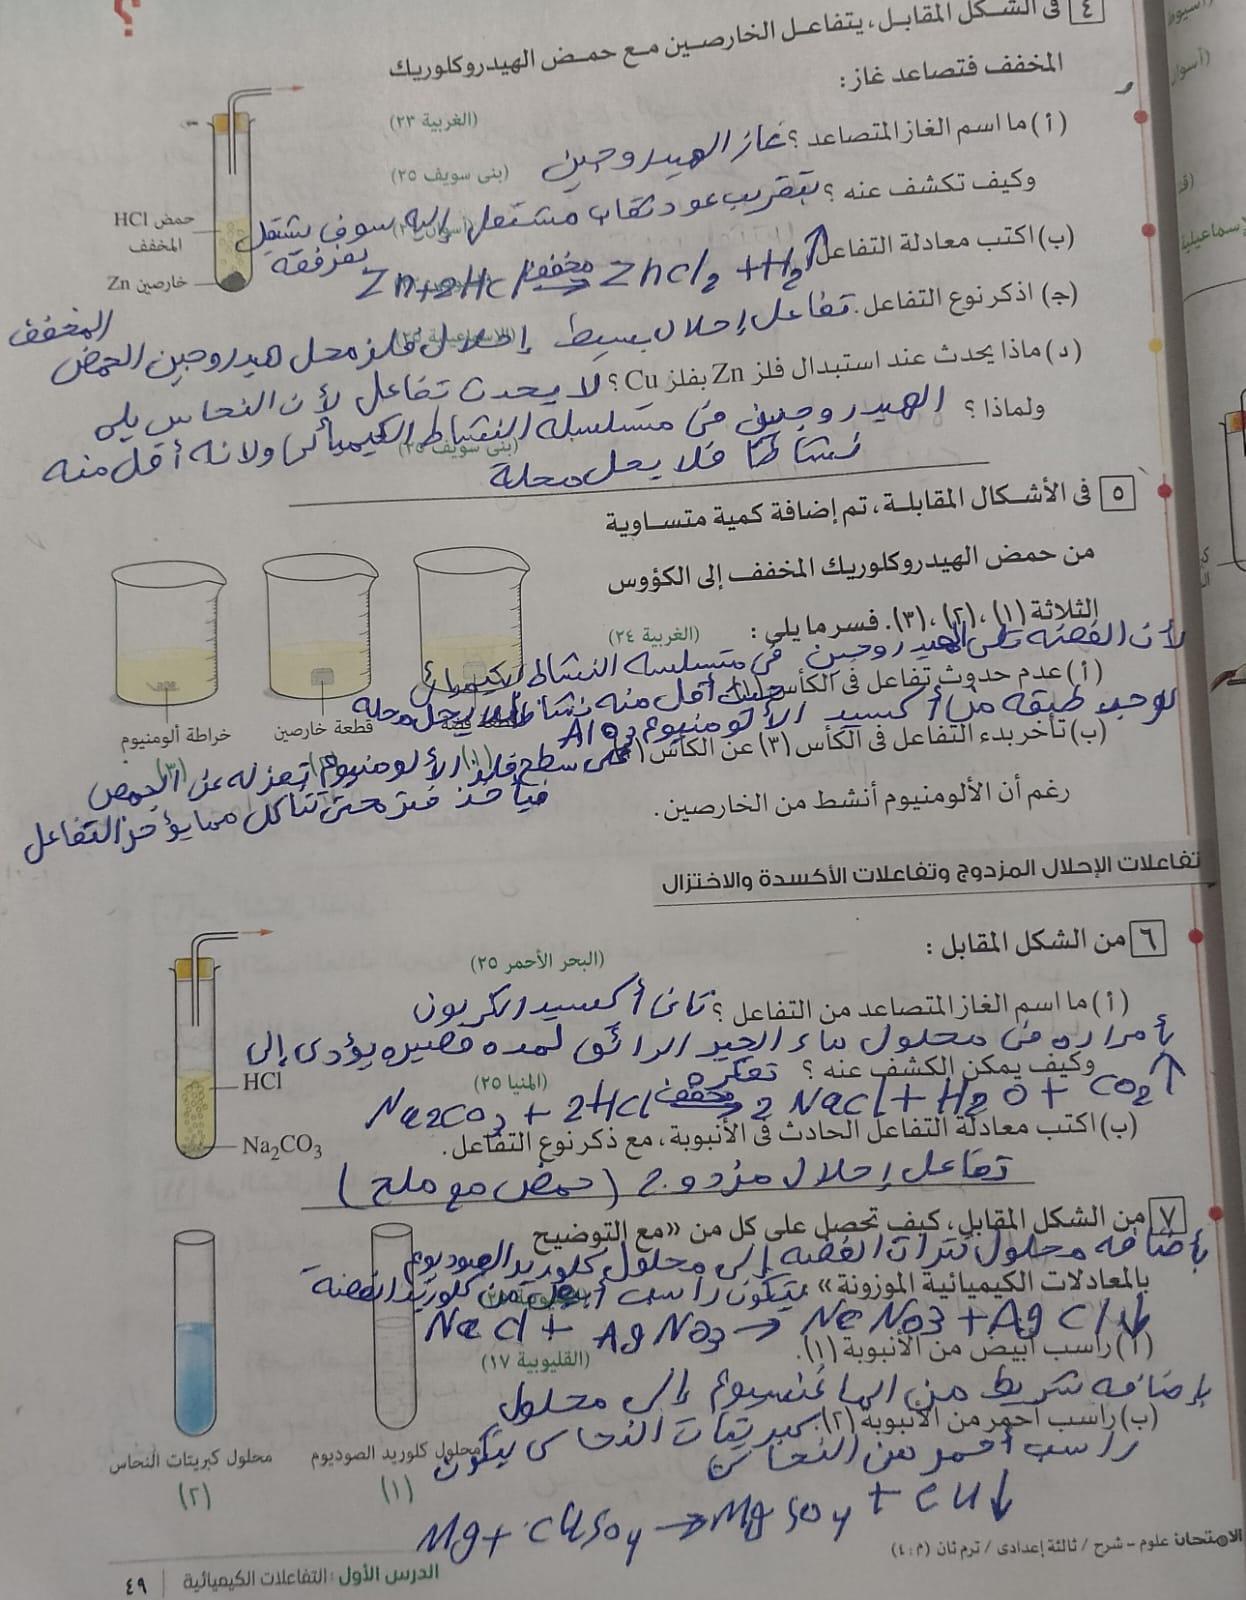 ٤ فى الشكل المقابل، يتفاعل الخارصين مع حمض الهيدروكلوريك
المخفف فتصاعد غاز :
(أ) ما اسم الغاز المتصاعد ؟ غاز الهيدروجين
(الغربية ٢٣)
وكيف تكشف عنه ؟ بتقريب عود ثقاب مشتعل إليه سوف يشتعل
بفرقعة
(بنى سويف ٢٥)
(ب) اكتب معادلة التفاعل
Zn + 2HCl مخفف → ZnCl2 + H2↑
(ج) اذكر نوع التفاعل. تفاعل إحلال بسيط إحلال فلز محل هيدروجين الحمض
المخفف
(د) ماذا يحدث عند استبدال فلز Zn بفلز Cu ؟ لا يحدث تفاعل لأن النحاس يلى
ولماذا ؟ الهيدروجين فى متسلسلة النشاط الكيميائى ولانه أقل منه
(بنى سويف ٢٥)
نشاطًا فلا يحل محلة
حمض HCl
المخفف
خارصين Zn
٥ فى الأشكال المقابلة، تم إضافة كمية متساوية
من حمض الهيدروكلوريك المخفف إلى الكؤوس
الثلاثة (١)، (٢)، (٣). فسر ما يلى :
(الغربية ٢٤)
لأن الفضه تلى الهيدروجين فى متسلسه النشاط الكيميائى
(أ) عدم حدوث تفاعل فى الكأس (١).
حيث أقل منه نشاطًا فلا يحل محله
لوجود طبقه من أكسيد الألومنيوم Al2O3
(ب) تأخر بدء التفاعل فى الكأس (٣) عن الكأس (٢)
على سطح فلز الألومنيوم تعزله عن الحمض
رغم أن الألومنيوم أنشط من الخارصين.
فيأخذ فتره حتى تتأكل مما يؤخر التفاعل
قطعة فضة
(١)
قطعة خارصين
(٢)
خراطة ألومنيوم
(٣)
تفاعلات الإحلال المزدوج وتفاعلات الأكسدة والاختزال
٦ من الشكل المقابل :
(البحر الأحمر ٢٥)
(أ) ما اسم الغاز المتصاعد من التفاعل ؟ ثانى أكسيد الكربون
بأمراره فى محلول ماء الجير الرائق لمده قصيره يؤدى إلى
وكيف يمكن الكشف عنه ؟ تعكره
(المنيا ٢٥)
Na2CO3 + 2HCl مخفف → 2NaCl + H2O + CO2↑
(ب) اكتب معادلة التفاعل الحادث فى الأنبوبة، مع ذكر نوع التفاعل.
تفاعل إحلال مزدوج (حمض مع ملح)
HCl
Na2CO3
٧ من الشكل المقابل، كيف تحصل على كل من «مع التوضيح
بأضافه محلول نترات الفضه إلى محلول كلوريد الصوديوم
بالمعادلات الكيميائية الموزونة» : يتكون راسب أبيض من كلوريد الفضة
NaCl + AgNO3 → NaNO3 + AgCl↓
(أ) راسب أبيض من الأنبوبة (١).
(القليوبية ١٧)
بإضافه شريط من الماغنسيوم إلى محلول
(ب) راسب أحمر من الأنبوبة (٢). كبريتات النحاس يتكون
راسب أحمر من النحاس
Mg + CuSO4 → MgSO4 + Cu↓
محلول كلوريد الصوديوم
(١)
محلول كبريتات النحاس
(٢)
الامتحان علوم - شرح / ثالثة إعدادى / ترم ثان (م : ٤)
الدرس الأول : التفاعلات الكيميائية | ٤٩